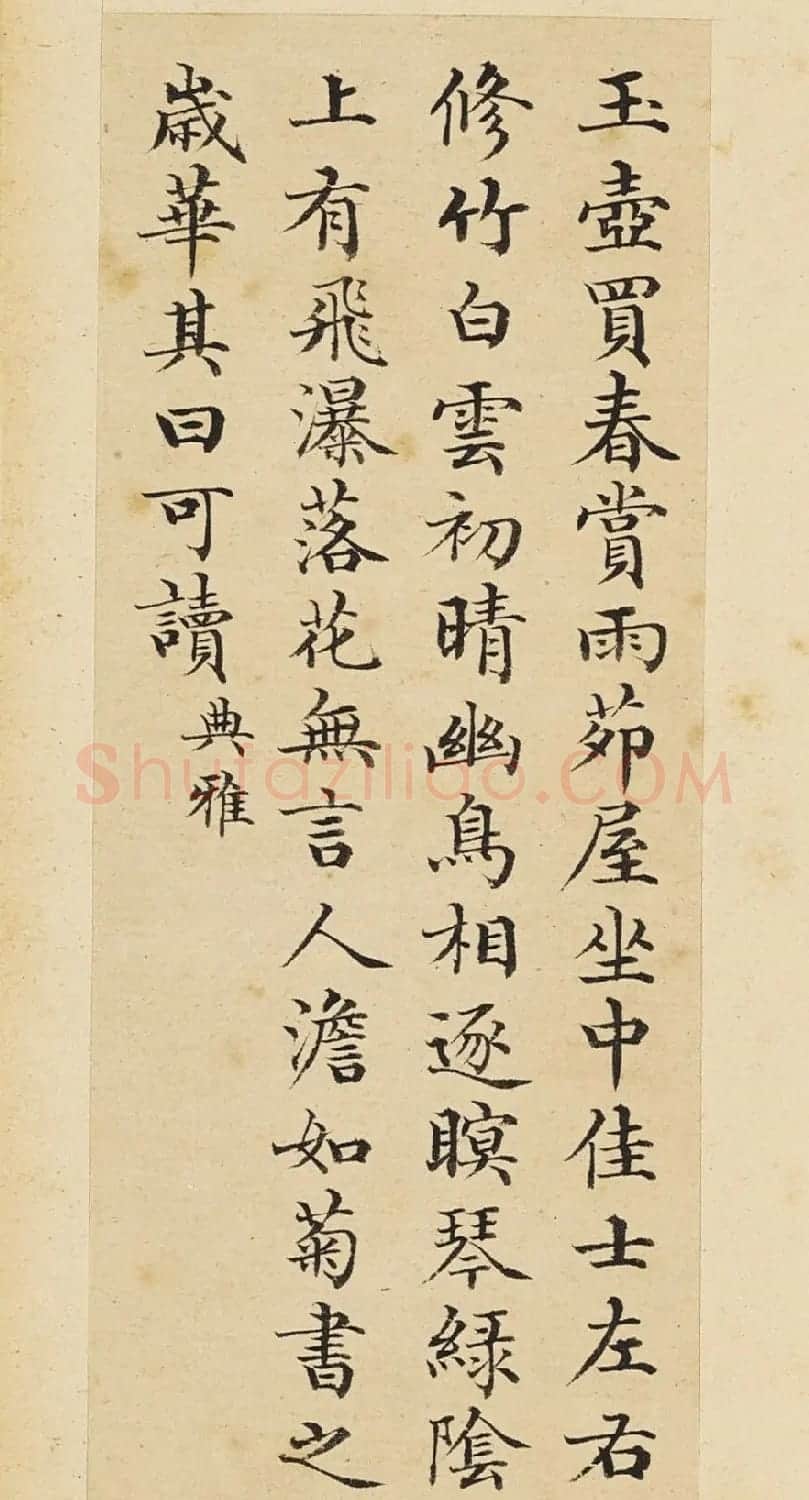 玉壺買春賞雨茆屋坐中佳士左右
修竹白雲初晴幽鳥相逐瞑琴綠陰
上有飛瀑落花無言人澹如菊書之
歲華其曰可讀典雅
Shufaziliao.COM